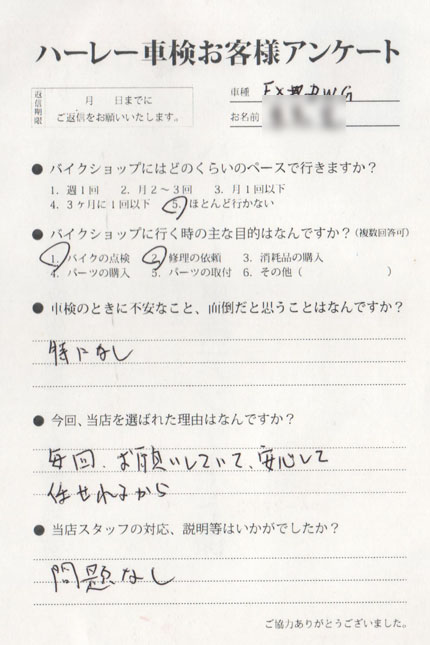 ハーレー車検お客様アンケート
返信期限
月　日までに
ご返信をお願いいたします。
車種
お名前
● バイクショップにはどのくらいのペースで行きますか？
1. 週1回　2. 月2～3回　3. 月1回以下
4. 3ヶ月に1回以下　5. ほとんど行かない
● バイクショップに行く時の主な目的はなんですか？(複数回答可)
1. バイクの点検　2. 修理の依頼　3. 消耗品の購入
4. パーツの購入　5. パーツの取付　6. その他（　　　）
● 車検のときに不安なこと、面倒だと思うことはなんですか？
特になし
● 今回、当店を選ばれた理由はなんですか？
毎回、お願いしていて、安心して
任せれるから
● 当店スタッフの対応、説明等はいかがでしたか？
問題なし
ご協力ありがとうございました。